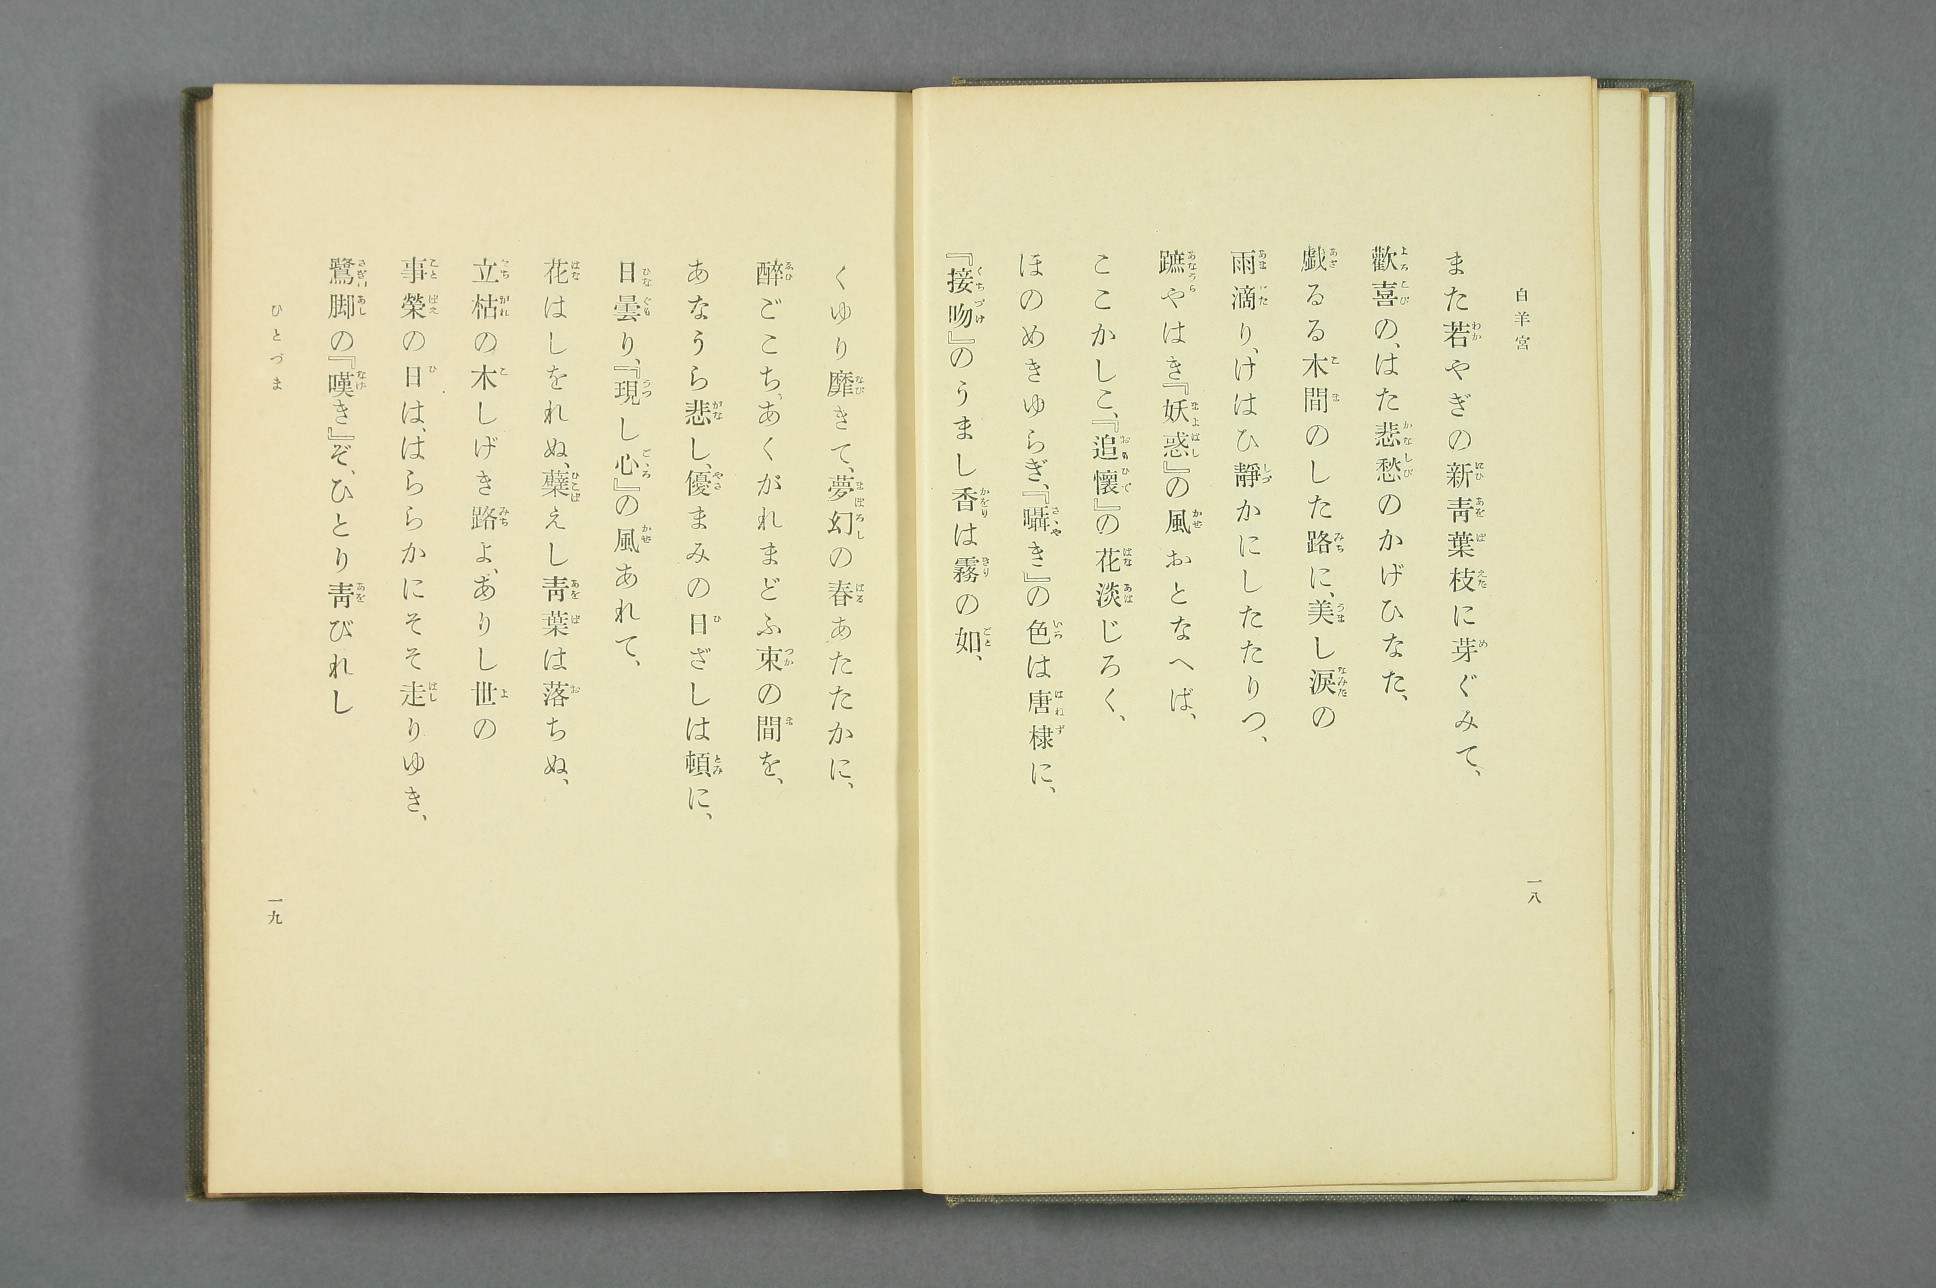 白羊宮
また若やぎの新青葉枝に芽ぐみて、
歡喜の、はた悲愁のかげひなた、
戯るる木間のした路に、美し涙の
雨滴り、けはひ靜かにしたたりつ、
蹠やはき『妖惑』の風おとなへば、
ここかしこ、『追懷』の花淡じろく、
ほのめきゆらぎ、『囁き』の色は唐棣に、
『接吻』のうまし香は霧の如、
一八
くゆり靡きて、夢幻の春あたたかに、
醉ごこち、あくがれまどふ束の間を、
あなうら悲し、優まみの日ざしは頓に、
日曇り、『現し心』の風あれて、
花はしをれぬ、蘗えし青葉は落ちぬ、
立枯の木しげき路よ、ありし世の
事榮の日は、はららかにそそ走りゆき、
鷺脚の『嘆き』ぞ、ひとり青びれし
ひとづま
一九